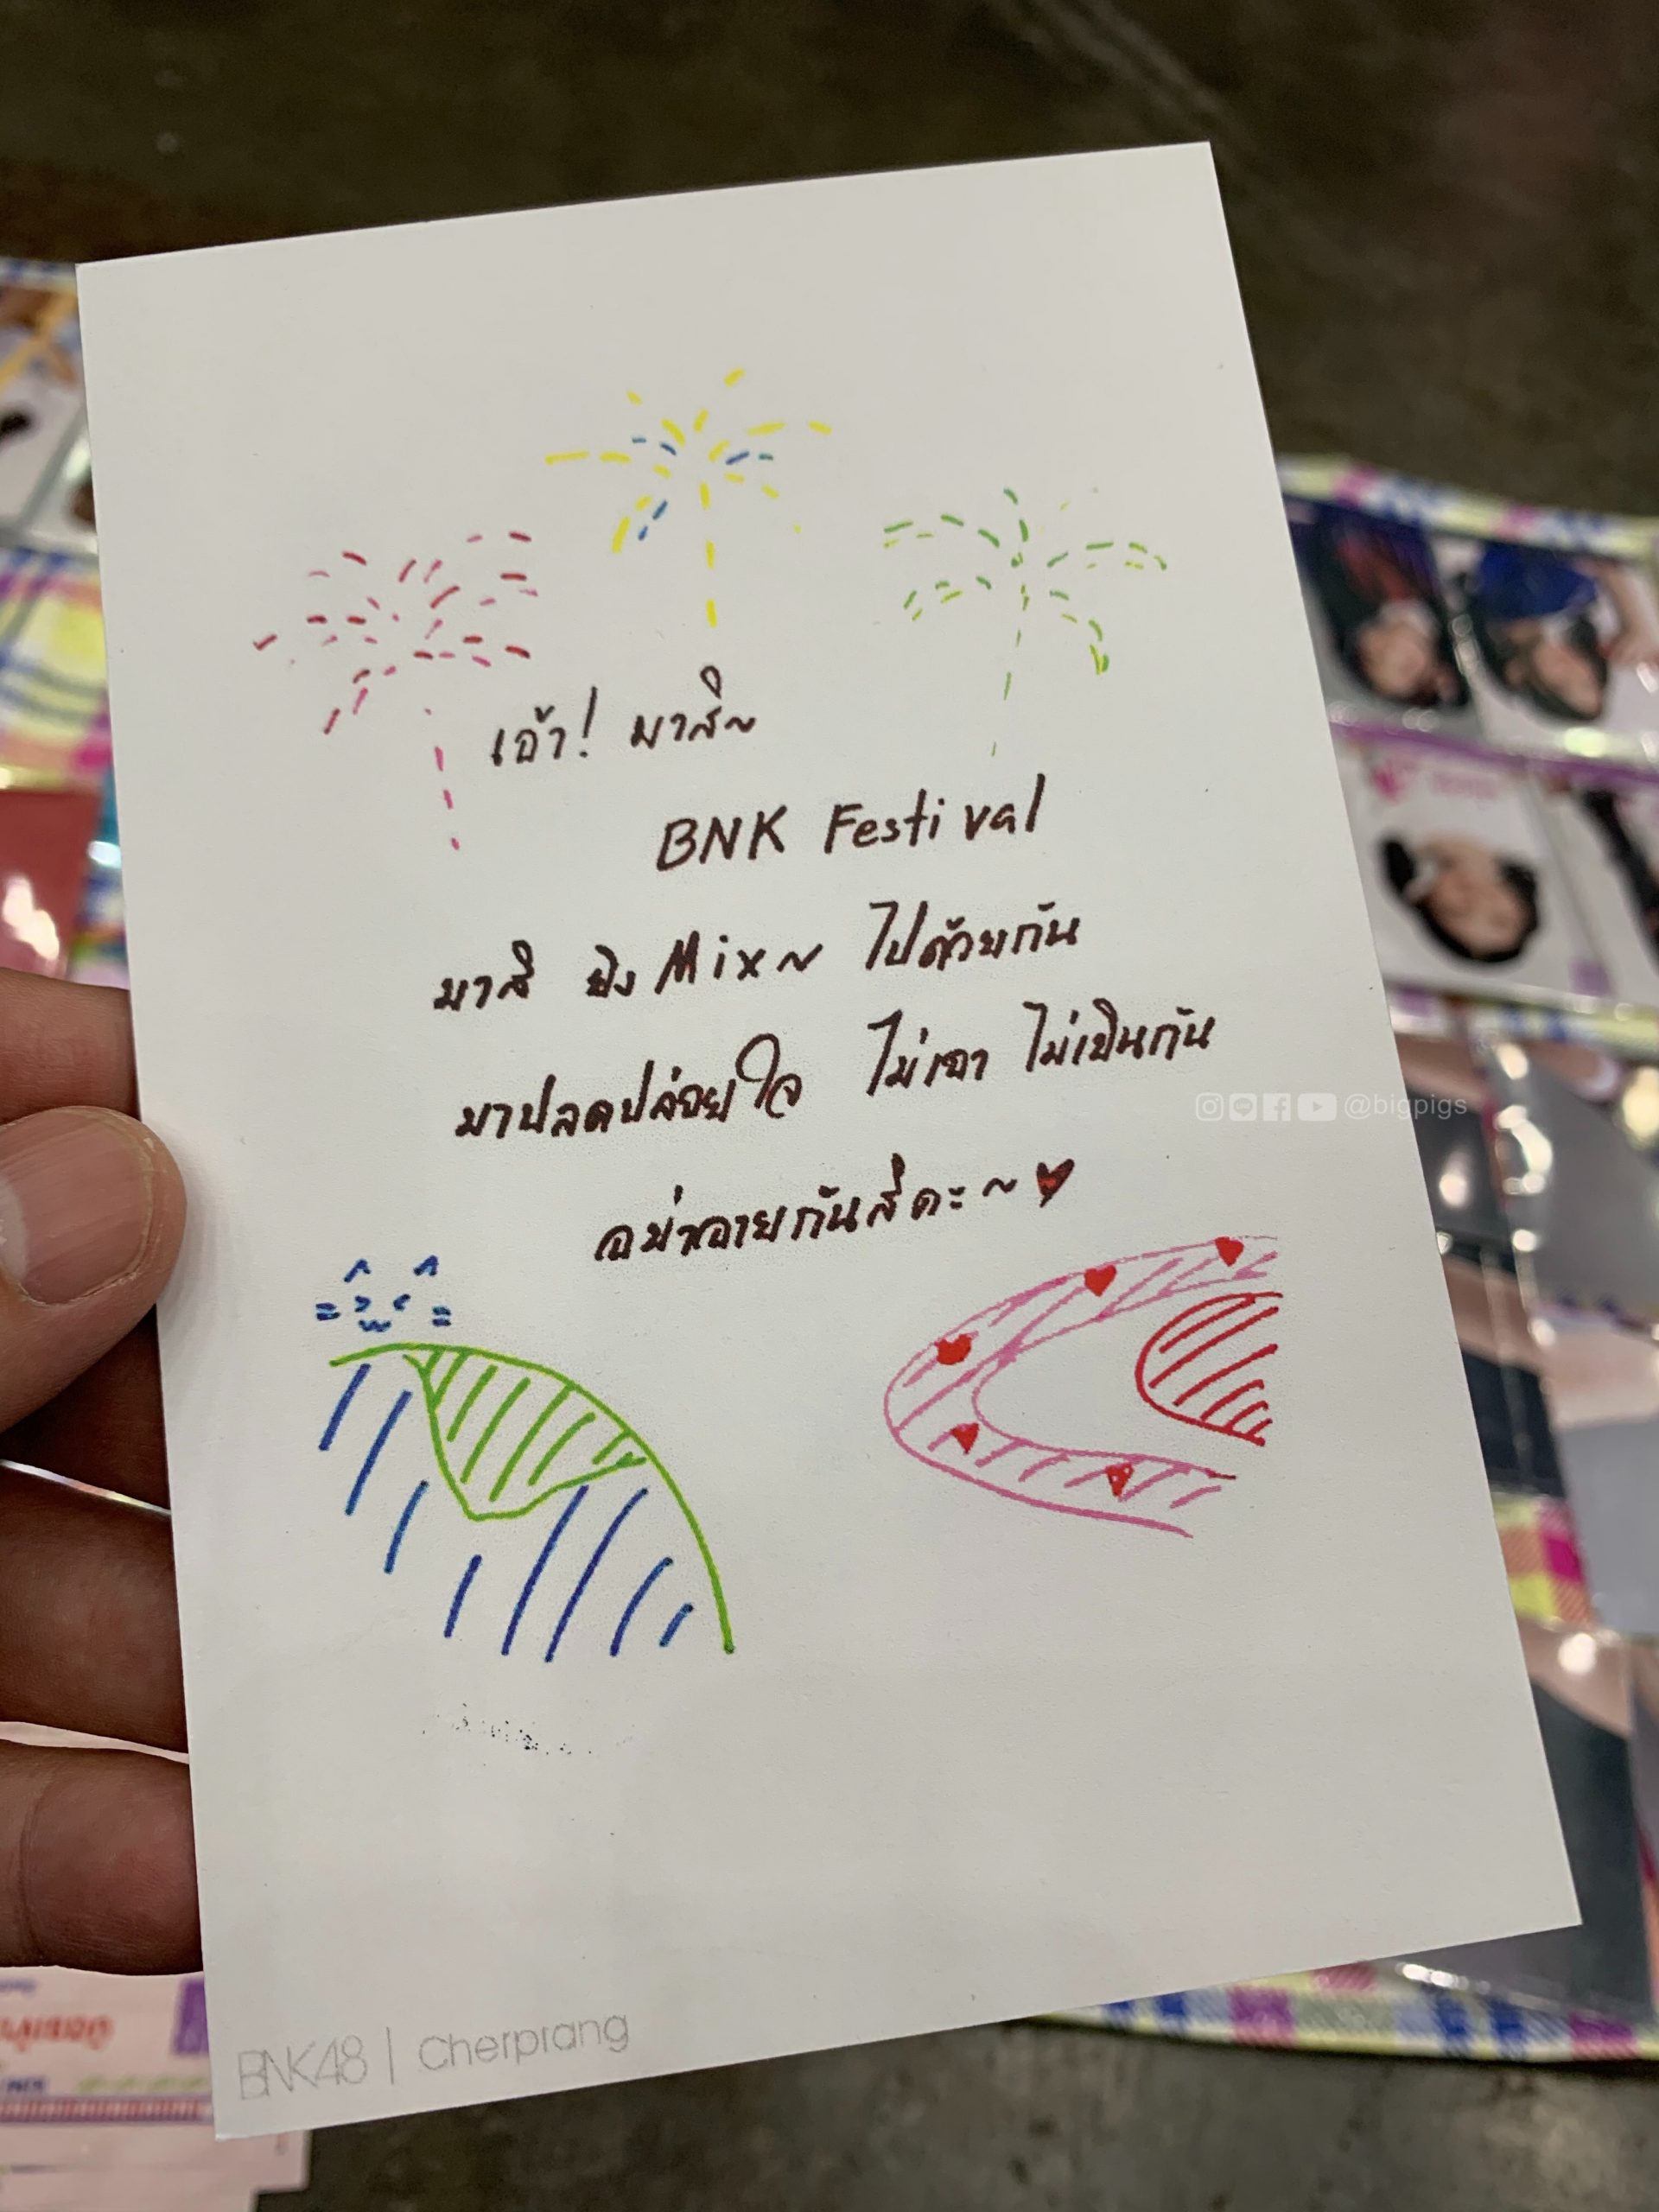 เอ้า! มาสิ~
BNK Festival
มาสิ ยิง Mix~ ไปด้วยกัน
มาปลดปล่อยใจ ไม่เอา ไม่เขินกัน
อย่าอายกันสิคะ~
@bigpigs
BNK48 | Cherprang